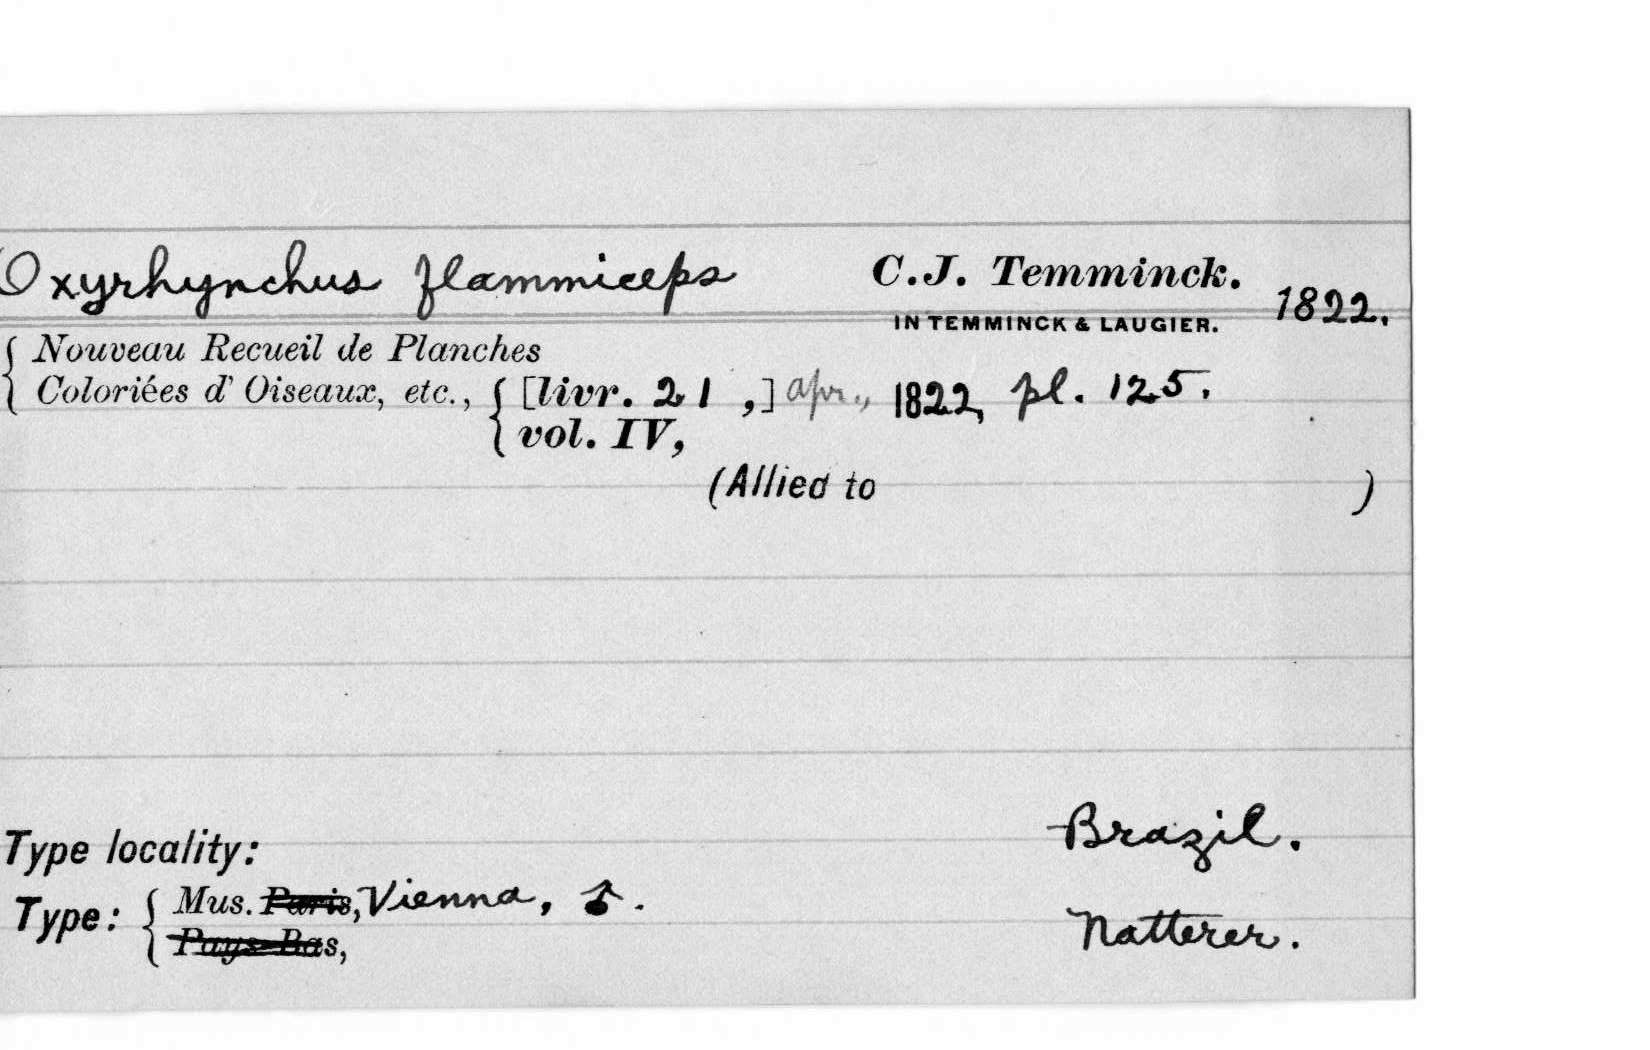 Oxyrhynchus flammiceps C.J. Temminck. 1822.
IN TEMMINCK & LAUGIER.
Nouveau Recueil de Planches
Coloriées d' Oiseaux, etc., [livr. 21 ,] apr., 1822, pl. 125.
vol. IV,
(Allied to )
Type locality: Brazil.
Type: Mus. Paris, Vienna, ♂. Natterer.
Pays-Bas,